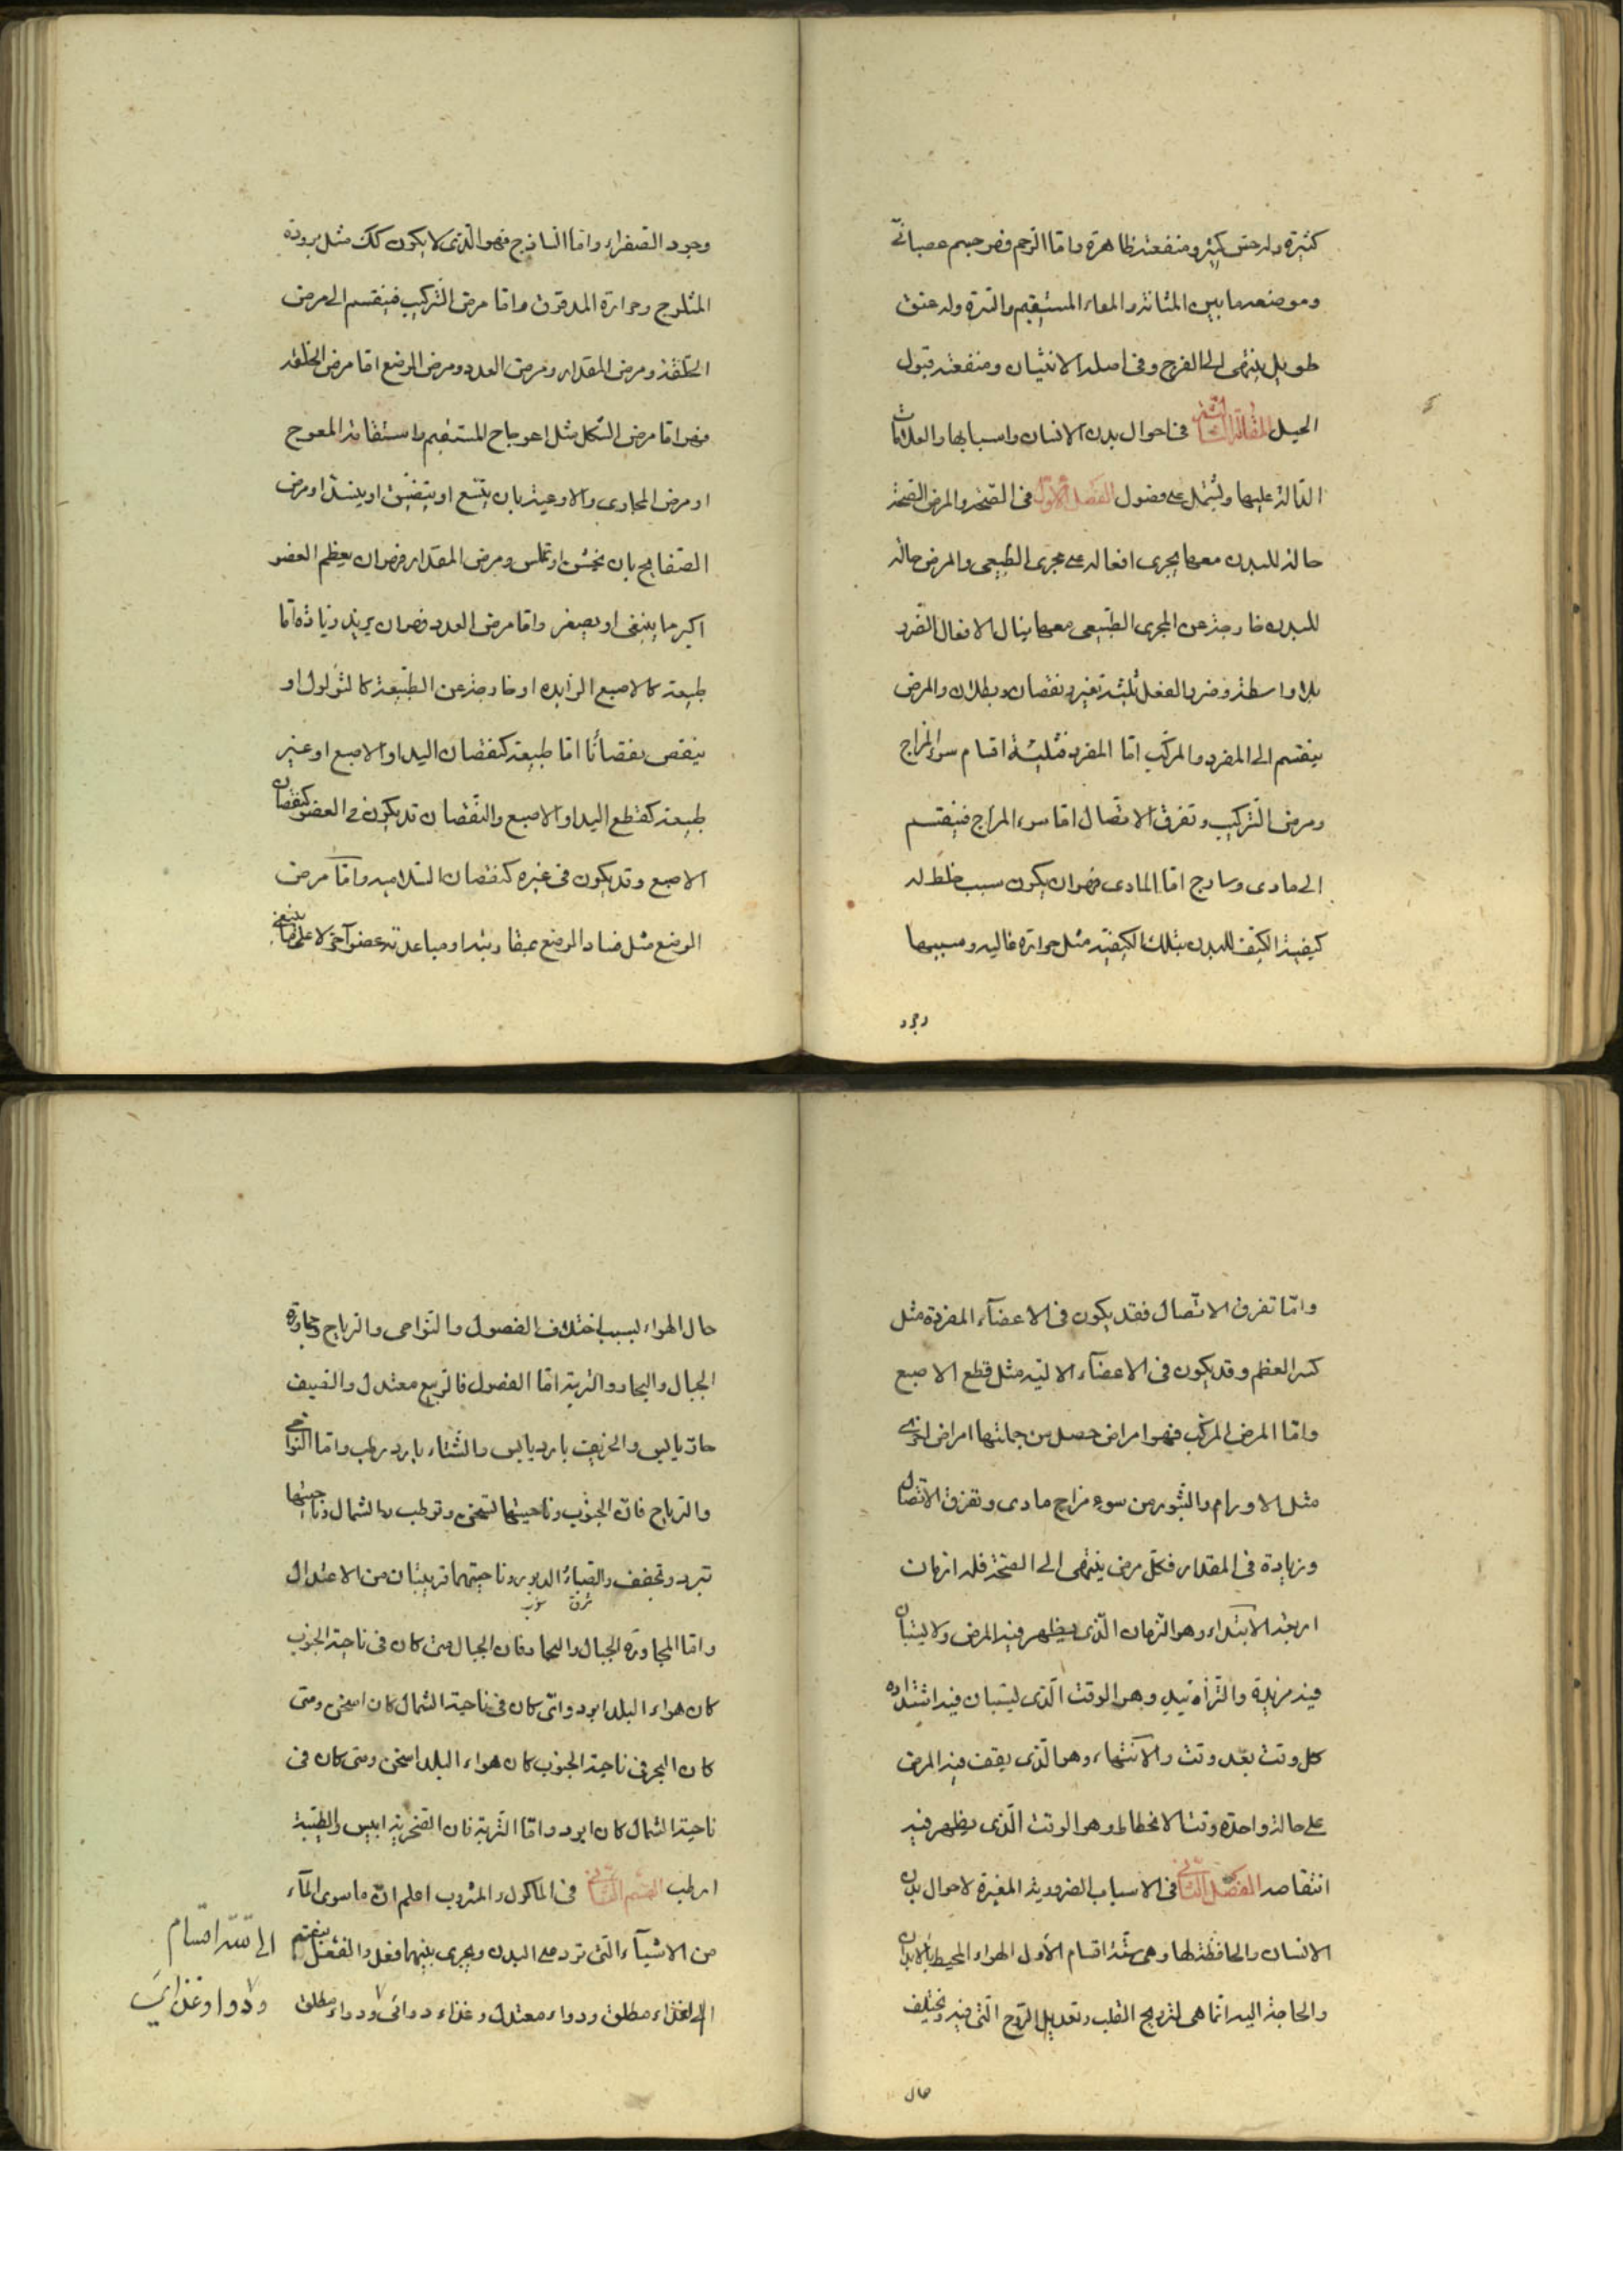 كثيرة وله حس كثير ومنفعته ظاهرة واما الرحم فهو جسم عصبانى
وموضعه ما بين المثانة والمعاء المستقيم والسرة وله عنق
طويل ينتهى الى الفرج وفى اصله الانثيان ومنفعته قبول
الحبل المقالة الثانية فى احوال بدن الانسان واسبابها والعلامات
الدالة عليها ويشتمل على فصول الفصل الاول فى الصحة والمرض الصحة
حالة للبدن معها يجرى افعاله على مجرى الطبيعى والمرض حالة
للبدن خارجة عن المجرى الطبيعى معها ينال الافعال الضرر
بلا واسطة وضرر الفعل ثلثة تغير ونقصان وبطلان والمرض
ينقسم الى المفرد والمركب اما المفرد فثلثة اقسام سوء المزاج
ومرض التركيب وتفرق الاتصال اما سوء المزاج فينقسم
الى مادى وساذج اما المادى فهو ان يكون سبب خلط له
كيفية الكيف للبدن بتلك الكيفية مثل حرارة غالبه ومسببها
وجود
وجود الصفراء واما الساذج فهو الذى لا يكون كك مثل برودة
المثلوج وحرارة المدقوق واما مرض التركيب فينقسم الى مرض
الخلقة ومرض المقدار ومرض العدد ومرض الوضع اما مرض الخلقة
فهو اما مرض الشكل مثل اعوجاج المستقيم واستقامة المعوج
او مرض المجارى والاوعية بان يتسع او يتضيق او ينسد او مرض
الصفايح بان تخشن او تملس ومرض المقدار فهو ان يعظم العضو
اكبر ما ينبغى او يصغر واما مرض العدد فهو ان يزيد زيادة اما
طبيعة كالاصبع الزايده او خارجة عن الطبيعة كالثولول او
ينقص نقصانًا اما طبيعة كنقصان اليد او الاصبع او غير
طبيعة كقطع اليد او الاصبع والنقصان قد يكون فى العضو كنقصان
الاصبع وقد يكون فى غيره كنقصان السلاميه واما مرض
الوضع مثل فساد الوضع بمقاربته او مباعدته عضو آخر لا على ما ينبغى
واما تفرق الاتصال فقد يكون فى الاعضآء المفردة مثل
كسر العظم وقد يكون فى الاعضآء الاليه مثل قطع الاصبع
واما المرض المركب فهو امراض حصل من جملتها امراض اخرى
مثل الاورام والبثور من سوء مزاج مادى وتفرق الاتصال
وزيادة فى المقدار فكل مرض ينتهى الى الصحة فله ازمان
اربعة الابتداء وهو الزمان الذى يظهر فيه المرض ولا يستبان
فيه مزيدة والتزائيد وهو الوقت الذى يستبان فيه اشتداده
كل وقت بعد وقت والانتهاء وهو الذى يقف فيه المرض
على حالة واحدة وقت الانحطاط وهو الوقت الذى يظهر فيه
انتقاصه الفصل الثانى فى الاسباب الضرورية المغيرة لاحوال بدن
الانسان والحافظة لها وهى ستة اقسام الأول الهواء المحيط بالابدان
والحاجة اليه انما هى لترويح القلب وتعديل الروح التى فيه ويختلف
حال
حال الهواء بسبب اختلاف الفصول والنواحى والرياح ومجاورة
الجبال والبحار والتربة اما الفصول فالربيع معتدل والصيف
حار يابس والخريف بارد يابس والشتاء بارد رطب واما النواحى
والرياح فان الجنوب وناحيتها تسخن وترطب والشمال وناحيتها
تبرد وتجفف والصبا والدبور وناحيتهما قريبتان من الاعتدال
شرق غرب
واما المجاورة الجبال والبحار فان الجبال متى كان فى ناحية الجنوب
كان هواء البلد ابرد واتى كان فى ناحية الشمال كان اسخن ومتى
كان البحر فى ناحية الجنوب كان هواء البلد اسخن ومتى كان فى
ناحية الشمال كان ابرد واما التربة فان الصخرية ايبس والطينية
ارطب القسم الثانى فى المأكول والمشروب اعلم ان ما سوى المآء
من الاشيآء التى ترد على البدن ويجرى بينهما فعل وانفعل ينقسم
الى ستة اقسام
الى غذاء مطلق ودواء معتدل وغذاء دوائى ودواء مطلق
ودوا وغذائى